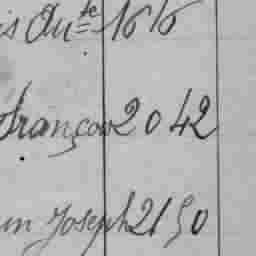 is Aute 1616
François 2042
in Joseph 2150